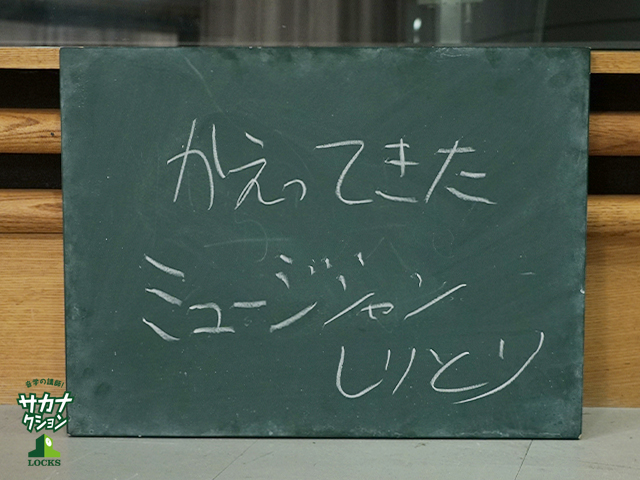 かえってきた
ミュージシャン
しりとり
音学の講師!
サカナ
クション
LOCKS